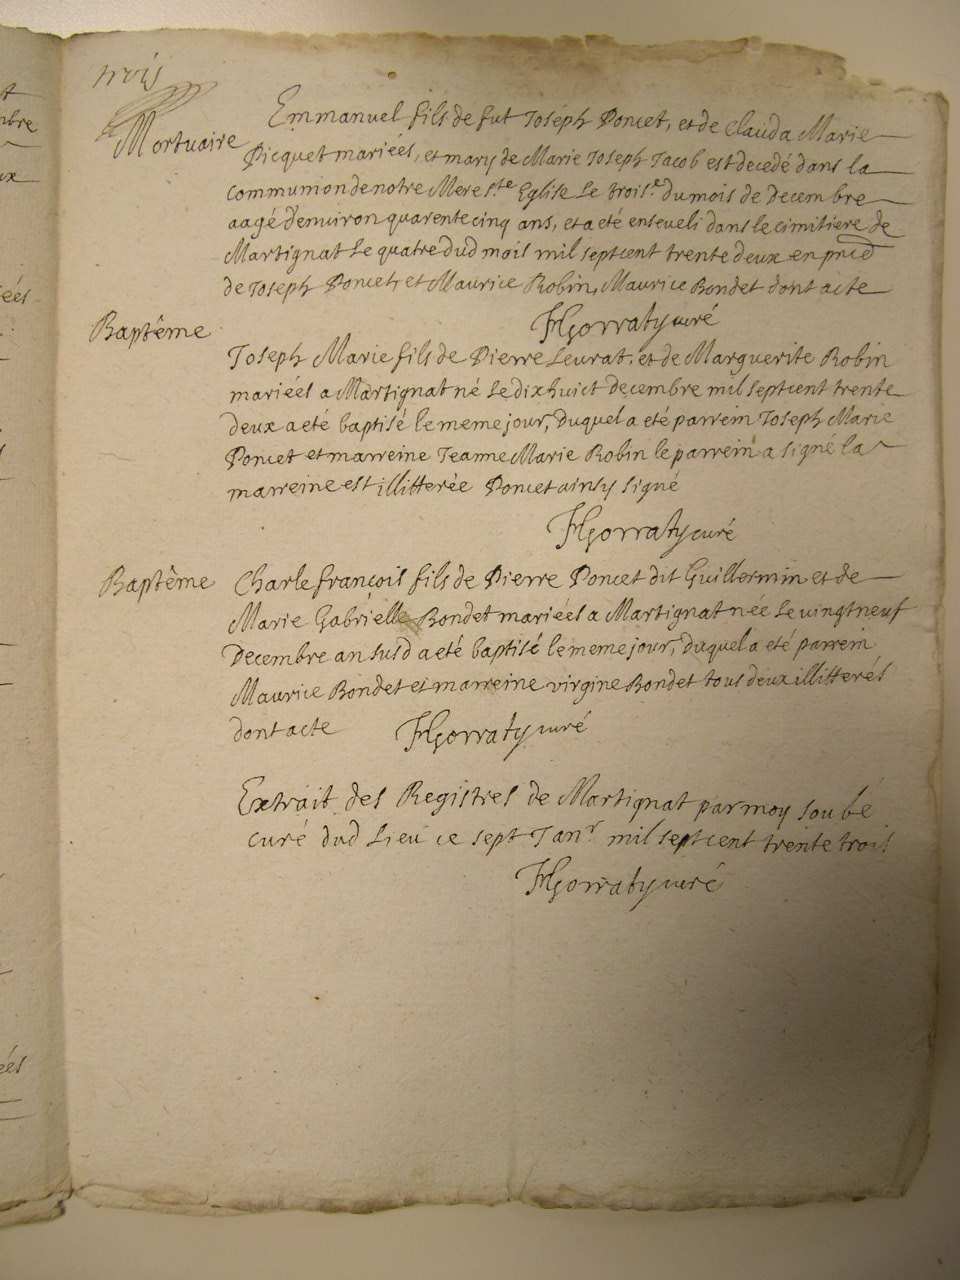 trois
Mortuaire
Emmanuel fils de fut Joseph Poncet, et de Clauda Marie
Picquet mariéés, et mary de Marie Joseph Jacob est decedé dans la
communion de notre Mere s.te Eglise Le trois.e du mois de Decembre
aagé d'environ quarente cinq ans, et a eté enseveli dans le cimitiere de
Martignat Le quatre dud mois mil sept cent trente deux en pñcd
de Joseph Poncet, et Maurice Robin, Maurice Bondet dont acte
JHGorraty curé
Baptême
Joseph Marie fils de Pierre Levrat, et de Marguerite Robin
mariéés a Martignat né Le dix huict Decembre mil sept cent trente
deux a eté baptisé le meme jour, Duquel a eté parrein Joseph Marie
Poncet et marreine Jeanne Marie Robin le parrein a signé la
marreine est illitterée Poncet ainsy signé
JHGorraty curé
Baptême
Charle françois fils de Pierre Poncet dit Guillermin et de
Marie Gabrielle Bondet mariéés a Martignat née Le vingt neuf
Decembre an susd a eté baptisé le meme jour, Duquel a eté parrein
Maurice Bondet et marreine virgine Bondet tous deux illitterés
dont acte JHGorraty curé
Extrait des Registres de Martignat par moy soubé
curé dud Lieu ce sept Janr mil sept cent trente trois
JHGorraty curé